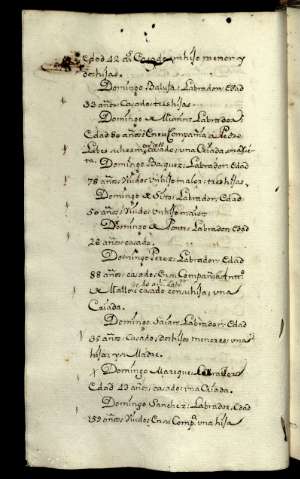 Edad 42 as Casado un hijo menor y
dos hijas.
Domingo Balussa: Labrador: Edad
33 años: Casado: tres hijas.
Domingo de Labrador
Edad 60 años: En su Compañia a Pedro
casado; una Criada
Domingo Bazquez: Labrador: Edad
78 años: Viudo: Un hijo maior: tres hijas.
Domingo de Soto: Labrador: Edad
50 años: Viudo: un hijo maior.
Domingo de Ponte: Labrador: Edad
28 años: casado.
Domingo Perez: Labrador: Edad
88 años: casado: En su Compañia
de Mattos: casado con su hija: una
Criada.
Domingo Labrador: Edad
35 años: Casado: dos hijos menores: una
hija: y su Madre.
Domingo Manrique: Labrador
Edad 43 años: casado: una Criada.
Domingo Sanchez: Labrador: Edad
53 años: Viudo: En su Compa una hija